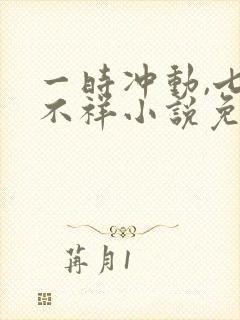 一時冲動,七
不祥小說免
苒月1